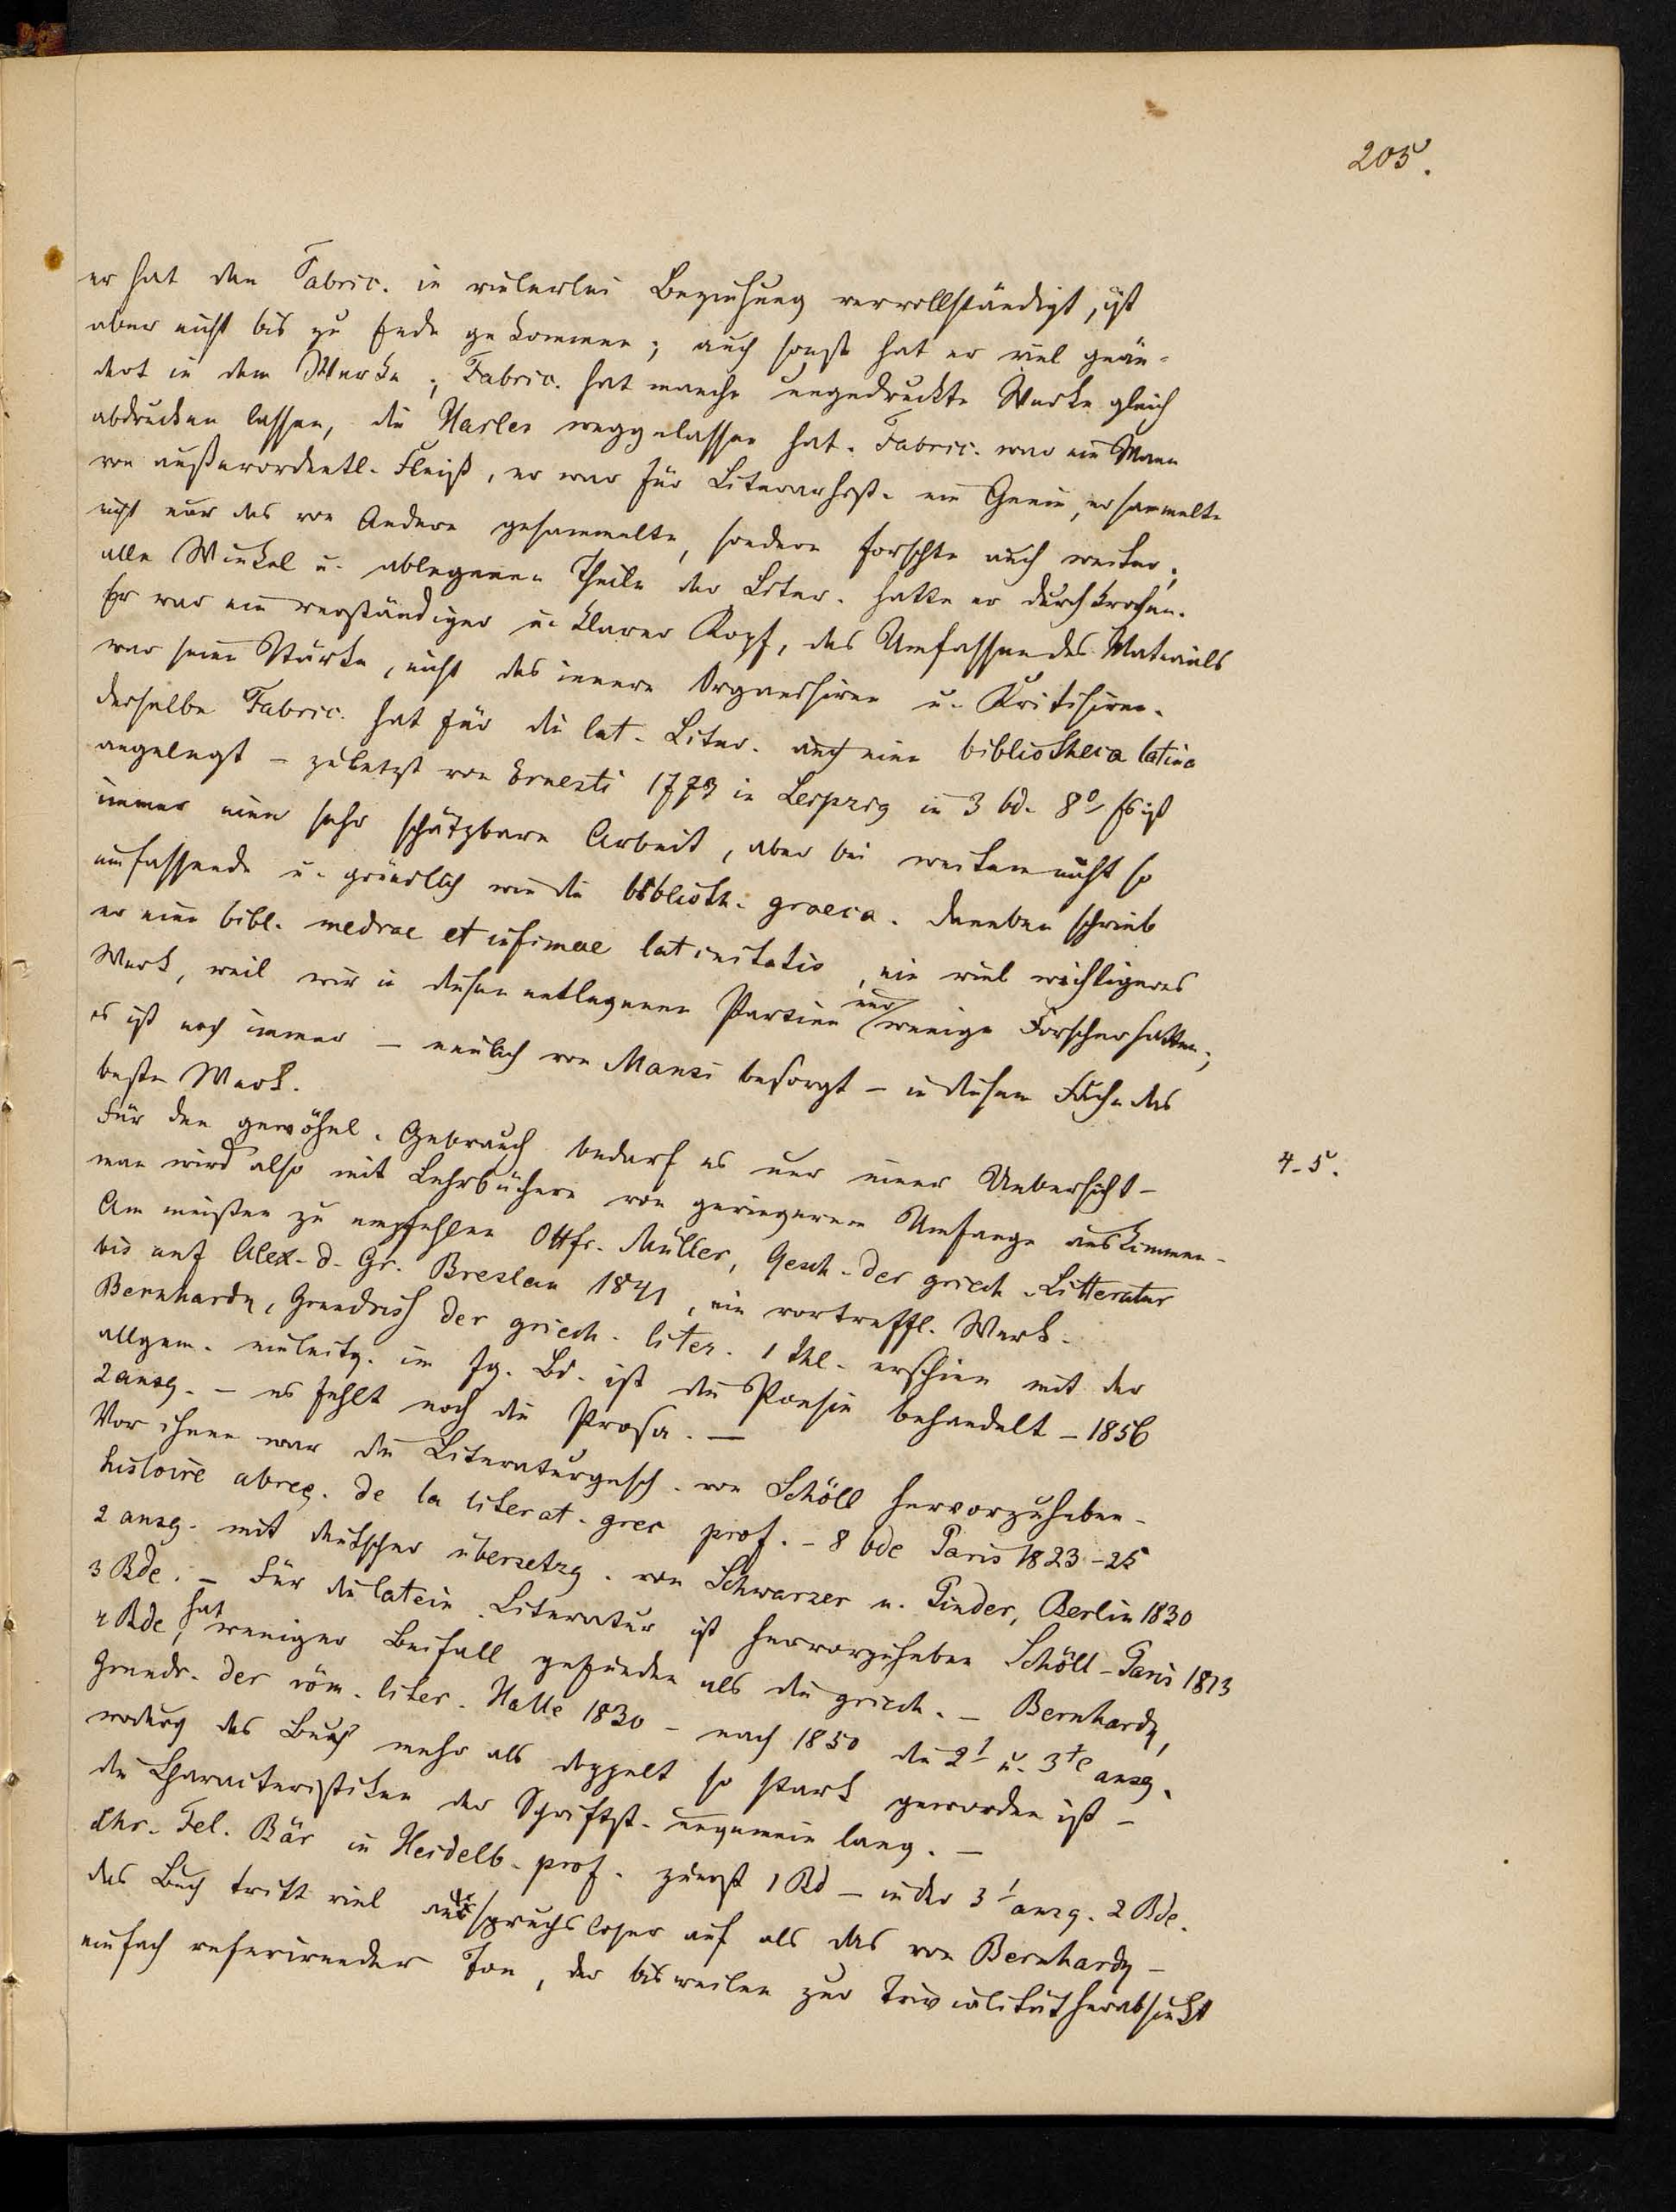 205.
er hat den Fabric. in vielerlei Beziehung vervollständigt, ist
aber nicht bis zu Ende gekommen; auch sonst hat er viel geän-
dert in dem Werke; Fabric. hat manche ungedruckte Werke gleich
abdrucken lassen, die Harles weggelassen hat. Fabric. war ein Mann
von außerordentl. Fleiß, er war für Literarhist. ein Genie, er sammelte
nicht nur das von Andern gesammelte, sondern forschte auch weiter;
alle Winkel u. ablegenen Theile der Liter. hatte er durchkrochen.
Er war ein verständiger u. klarer Kopf, das Umfassen des Materials
war seine Stärke, nicht das innere Organisiren u. Kritisiren.
derselbe Fabric. hat für die lat. Liter. auch eine bibliotheca latina
angelegt – zuletzt von Ernesti 1773 in Leipzig in 3 bd. 8° Es ist
immer eine sehr schätzbare Arbeit, aber bei weitem nicht so
umfassende u. gründlich wie die biblioth. graeca. daneben schrieb
er eine bibl. mediae et infimae latinitatis, ein viel wichtigeres
Werk, weil wir in diesen entlegenen Partien nur wenige Forscher hatten;
es ist noch immer – neulich von Mansi besorgt – in diesem Fache das
beste Werk.
Für den gewöhnl. Gebrauch bedarf es nur einer Uebersicht – 4-5.
man wird also mit Lehrbüchern von geringerem Umfange auskommen –
Am meisten zu empfehlen Ottfr. Müller, Gesch. der griech. Litteratur
bis auf Alex. d. Gr. Breslau 1841, ein vortreffl. Werk.
Bernhardy, Grundriß der griech. liter. 1 thl. erschien mit der
allgem. einleitg. im fg. Bd. ist die Poesie behandelt – 1856
2 ausg. – es fehlt noch die Prosa. –
Vor ihnen war die Literaturgesch. von Schöll hervorzuheben –
histoire abreg. de la literat. grec prof. – 8 bde Paris 1823–25
2 ausg. mit deutscher übersetzg. von Schwarzer u. Pinder, Berlin 1830
3 Bde. – Für die latein. Literatur ist hervorzuheben Schöll – Paris 1813
4 Bde, hat weniger Beifall gefunden als die griech. – Bernhardy,
Grundr. der röm. liter. Halle 1830 – nach 1850 die 2t u. 3te ausg.
wodurch das Buch mehr als doppelt so stark geworden ist –
die Characteristiken der Schriftst. ungemein lang. –
Chr. Fel. Bär in Heidelb. prof. zuerst 1 Bd – in der 3t ausg. 2 Bde.
das Buch tritt viel anspruchsloser auf als das von Bernhardy –
einfach referirender Ton, der bisweilen zur Trivialität herabsinkt